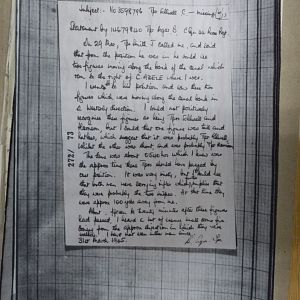 Subject:- No 3598796 Tpr Elliott C - missing
Statement by 14479840 Tpr Ager S C Sqn
On 29 Mar, Tpr Smith J called me, and said
that from the position he was in he could see
two figures moving along the bank of the canal which
ran to the right of C. ADELE where I was.
I went to his position and saw these two
figures which were moving along the canal bank in
a Westerly direction. I could not positively
recognise these figures as being Tpr Elliott and
but I could that one figure was tall and
which suggest that it was probably Tpr Elliott,
Whilst the other was short and was probably Tpr
272/173
The time was about 0500 hrs which I knew was
the approx time these Tprs should have passed by
our position. It was very misty, but I could see
that both men were carrying rifles which that
they were probably the two snipers. At this time they
were approx 100 yds away from me.
About fifteen to twenty minutes after these figures
had passed, I heard a lot of enemy small arms fire
coming from the approx direction in which they were
walking. I have not seen them since.
31st March 1945. S. Ager Tpr